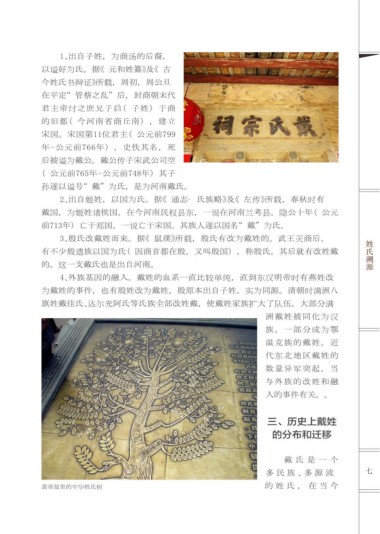 1.出自子姓，为商汤的后裔，
以谥好为氏。据《元和姓纂》及《古
今姓氏书辩证》所载，周初，周公旦
在平定“管蔡之乱”后，封商朝末代
君主帝纣之庶兄子启（子姓）于商
的旧都（今河南省商丘南），建立
宋国。宋国第11位君主（公元前799
年-公元前766年），史佚其名，死
后被谥为戴公。戴公传子宋武公司空
（公元前765年-公元前748年）其子
孙遂以谥号“戴”为氏，是为河南戴氏。
戴氏宗祠
2.出自姬姓，以国为氏。据《通志·氏族略》及《左传》所载，春秋时有
戴国，为姬姓诸侯国，在今河南民权县东，一说在河南兰考县。隐公十年（公元
前713年）亡于郑国，一说亡于宋国。其族人遂以国名“戴”为氏。
3.殷氏改戴姓而来。据《鼠璞》所载，殷氏有改为戴姓的。武王灭商后，
有不少殷遗族以国为氏（因商首都在殷，又叫殷国），称殷氏，其后就有改姓戴
的。这一支戴氏也是出自河南。
4.外族基因的融入。戴姓的血系一直比较单纯，直到东汉明帝时有燕姓改
为戴姓的事件，也有殷姓改为戴姓，殷原本出自子姓，实为同源。清朝时满洲八
旗姓戴佳氏、达尔充阿氏等氏族全部改姓戴，使戴姓家族扩大了队伍，大部分满
洲戴姓被同化为汉
族，一部分成为鄂
温克族的戴姓。近
代东北地区戴姓的
数量异军突起，当
与外族的改姓和融
入的事件有关。。
三、历史上戴姓
的分布和迁移
戴氏是一个
多民族、多源流
的姓氏，在当今
黄帝故里的中华姓氏树
姓氏溯源
七